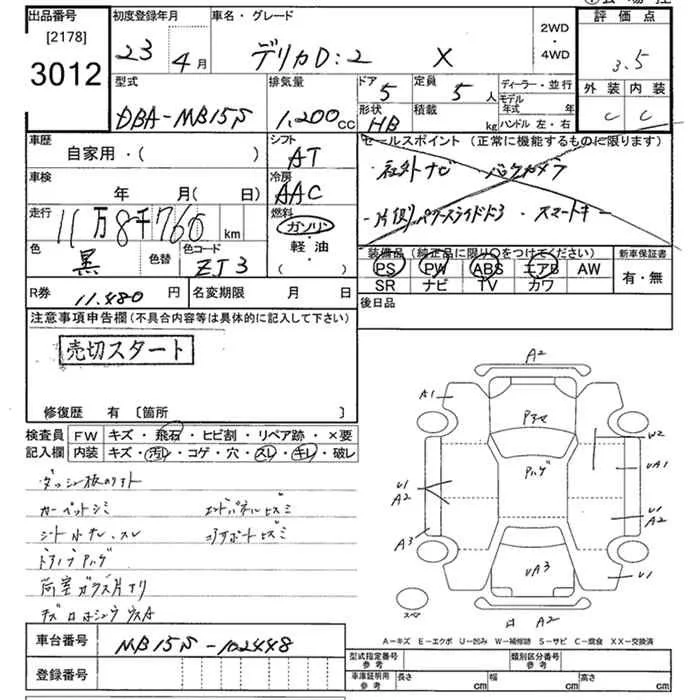 出品番号
[2178]
3012
初度登録年月
23年 4月
車名・グレード
デリカD:2 X
2WD
・
4WD
評価点
3.5
外装 内装
C C
型式
DBA-MB15S
排気量
1,200cc
ドア 5
形状 HB
定員 5人
積載 kg
ディーラー・並行
モデル年式 年
ハンドル 左・右
車歴
自家用・( )
シフト
AT
セールスポイント (正常に機能するものに限ります)
・社外ナビ ・バックカメラ
・片側パワースライドドア ・スマートキー
車検
年 月( 日)
冷房
AAC
走行
11万8千760km
燃料
ガソリン
軽・油
・( )
色
黒
色替
色コード
ZJ3
装備品 (純正品に限り○をつけてください)
PS PW ABS エアB AW
SR ナビ TV カワ
新車保証書
有・無
R券 11,480円
名変期限 月 日
後日品
注意事項申告欄(不具合内容等は具体的に記入して下さい)
売切スタート
修復歴 有 〔箇所 〕
検査員記入欄
FW キズ・飛石・ヒビ割・リペア跡・×要
内装 キズ・汚レ・コゲ・穴・スレ・キレ・破レ
カーペットシミ エンドパネルヒズミ
コアサポートヒズミ
荷室ガラス片アリ
A2
A1
W2
UA1
U1
A2
U1
A2
A3
UA3
U1
A2
スペア
A-キズ E-エクボ U-凹み W-補修跡 S-サビ C-腐食 XX-交換済
車台番号 MB15S-102448
登録番号
型式指定番号 参考
類別区分番号 参考
車庫証明用 参考
長さ cm
幅 cm
高さ cm